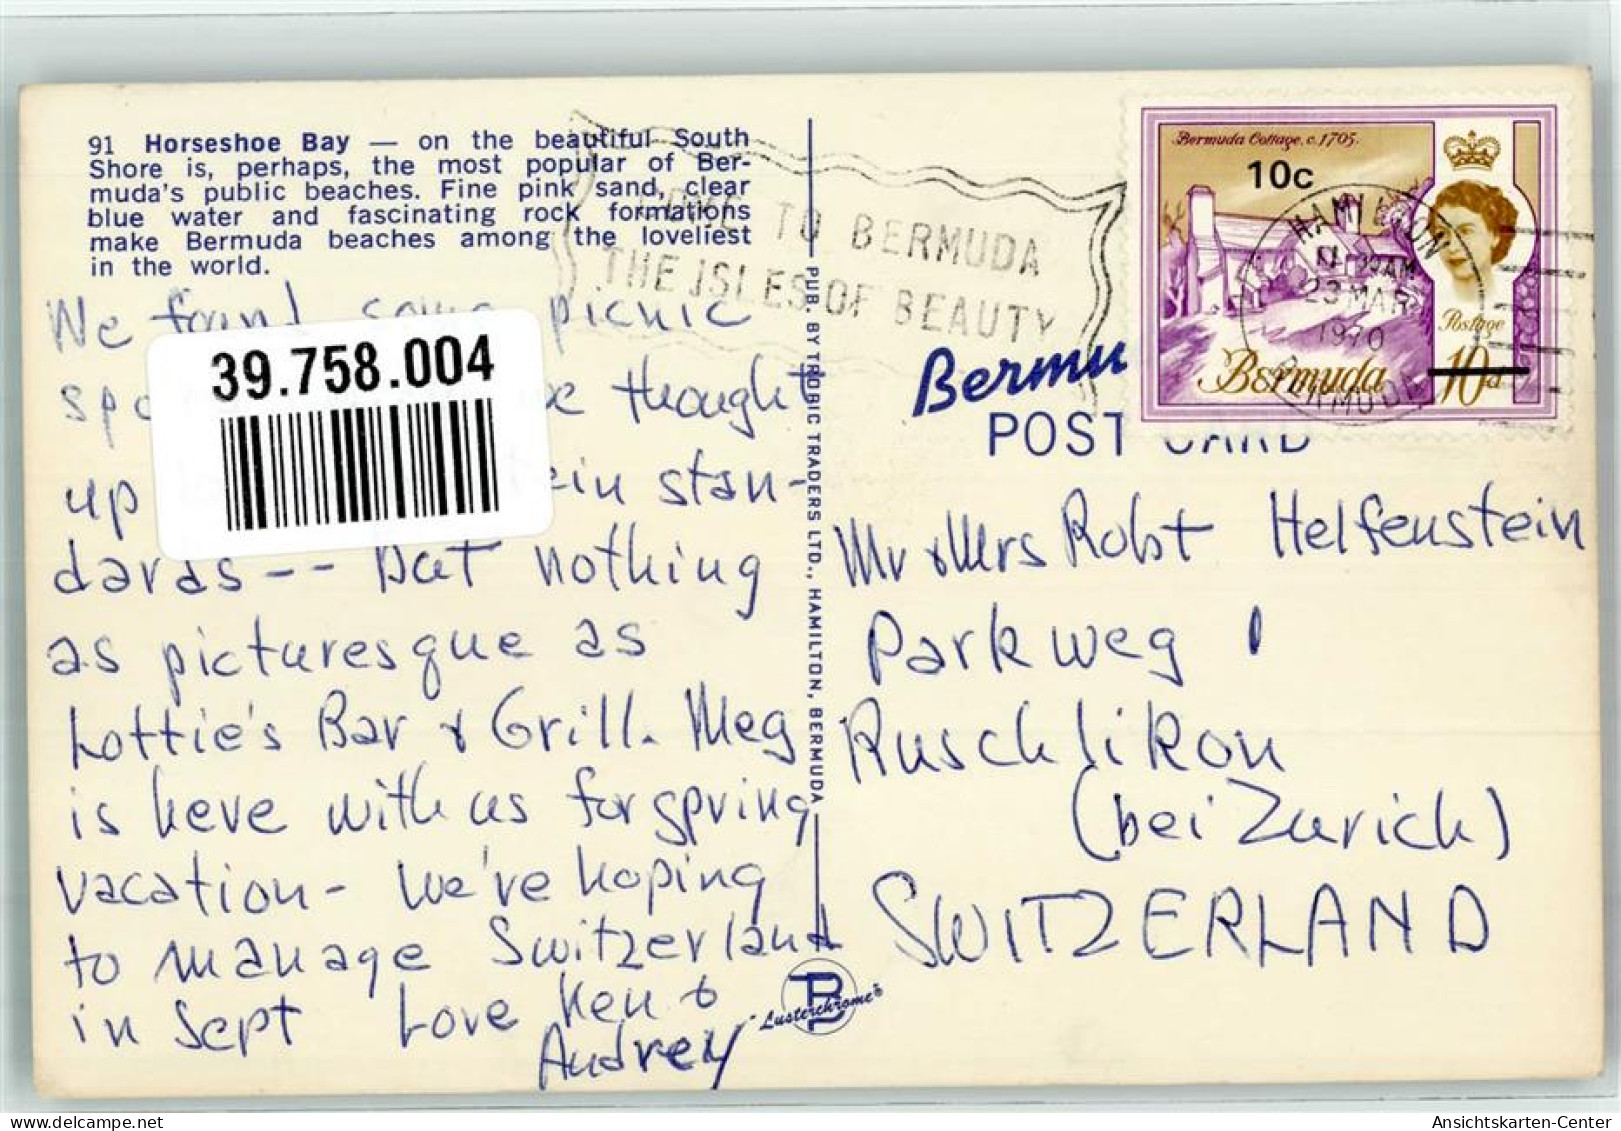 91 Horseshoe Bay — on the beautiful South
Shore is, perhaps, the most popular of Ber-
muda's public beaches. Fine pink sand, clear
blue water and fascinating rock formations
make Bermuda beaches among the loveliest
in the world.
We found some picnic
thought
up stan-
dards -- but nothing
as picturesque as
Lottie's Bar & Grill. Meg
is here with us for spring
vacation - We're hoping
to manage Switzerland
in Sept Love Ken &
Audrey
39.758.004
PUB. BY TROBIC TRADERS LTD., HAMILTON, BERMUDA
B
Lusterchrome®
TO BERMUDA
THE ISLES OF BEAUTY
Bermuda Cottage, c.1705.
10c
Postage
Bermuda 10d
HAMILTON
AM
23 MAR
1970
BERMUDA
Bermu
POST CARD
Mr & Mrs Robt Helfenstein
Parkweg 1
Ruschlikon
(bei Zurich)
SWITZERLAND
Ansichtskarten-Center